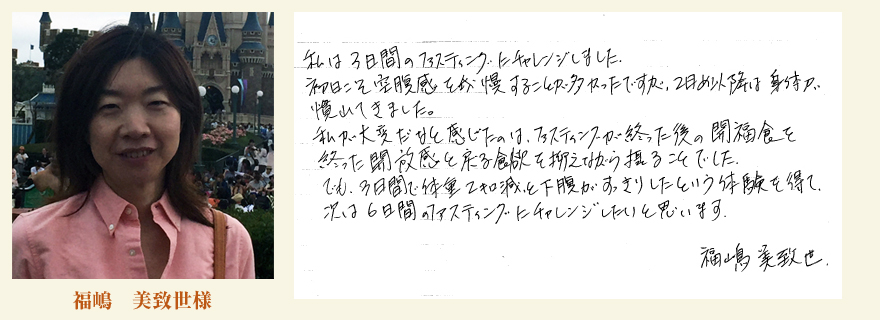 私は3日間のファスティングにチャレンジしました。
初日こそ空腹感を我慢することが多かったですが、2日め以降は身体が
慣れてきました。
私が大変だなと感じたのは、ファスティングが終った後の開福食を
終った開放感と戻る食欲を抑えながら摂ることでした。
でも、3日間で体重2キロ減と下腹がすっきりしたという体験を得て、
次は6日間のファスティングにチャレンジしたいと思います。
福嶋美致世
福嶋　美致世様